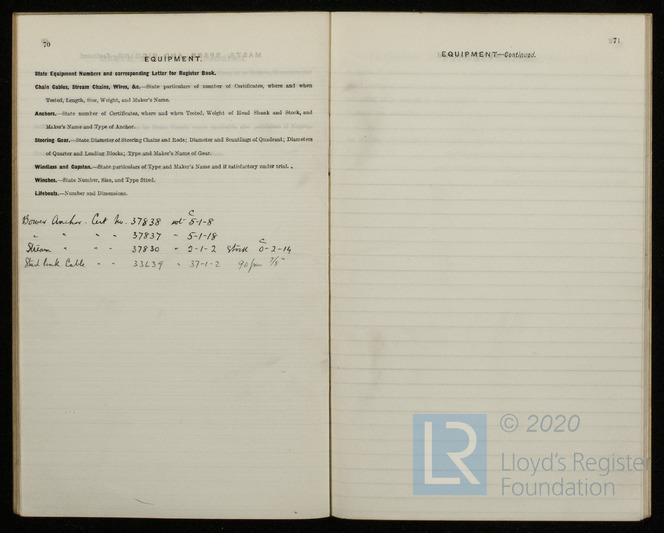 70
EQUIPMENT.
State Equipment Numbers and corresponding Letter for Register Book.
Chain Cables, Stream Chains, Wires, &c.—State particulars of number of Certificates, where and when
Tested, Length, Size, Weight, and Maker's Name.
Anchors.—State number of Certificates, where and when Tested, Weight of Head Shank and Stock, and
Maker's Name and Type of Anchor.
Steering Gear.—State Diameter of Steering Chains and Rods; Diameter and Scantlings of Quadrant; Diameters
of Quarter and Leading Blocks; Type and Maker's Name of Gear.
Windlass and Capstan.—State particulars of Type and Maker's Name and if satisfactory under trial.
Winches.—State Number, Size, and Type fitted.
Lifeboats.—Number and Dimensions.
Bower Anchor. Cert No. 37838 wt 5-1-8
" " " " 37837 " 5-1-18
Stream " " " 37830 " 2-1-2 Stock 0-2-14
Stud Link Cable " " 33639 " 37-1-2 90 fm
71
EQUIPMENT—Continued.
© 2020
Lloyd's Register
Foundation
LR